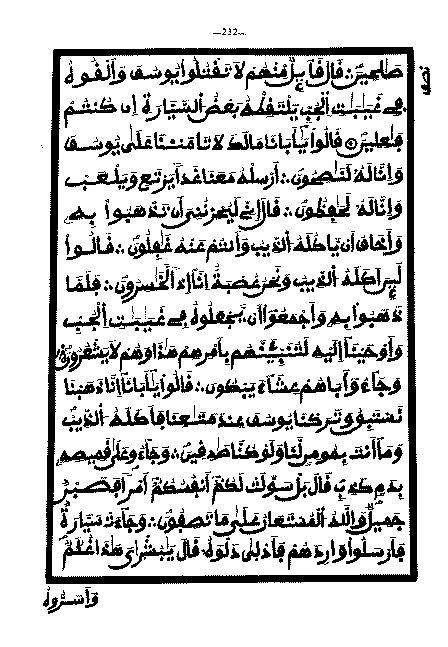 —232—
نصف
صَٰلِحِينَ ؞ قَالَ قَآئِلٌ مِّنْهُمْ لَا تَقْتُلُوا۟ يُوسُفَ وَأَلْقُوهُ
فِے غَيَٰبَٰتِ اِ۬لْجُبِّ يَلْتَقِطْهُ بَعْضُ اُ۬لسَّيَّارَةِ إِن كُنتُمْ
فَٰعِلِينَ ۞ قَالُوا۟ يَٰٓأَبَانَا مَا لَكَ لَا تَأْمَ۬نَّا عَلَىٰ يُوسُفَ
وَإِنَّا لَهُۥ لَنَٰصِحُونَ ؞ أَرْسِلْهُ مَعَنَا غَداً يَرْتَعِ وَيَلْعَبْ
وَإِنَّا لَهُۥ لَحَٰفِظُونَ ؞ قَالَ إِنِّے لَيُحْزِنُنِيَ أَن تَذْهَبُوا۟ بِهِۦ
وَأَخَافُ أَنْ يَّأْكُلَهُ اُ۬لذِّيبُ وَأَنتُمْ عَنْهُ غَٰفِلُونَ ؞ قَالُوا۟
لَئِنْ أَكَلَهُ اُ۬لذِّيبُ وَنَحْنُ عُصْبَةٌ إِنَّآ إِذاً لَّخَٰسِرُونَ ؞ فَلَمَّا
ذَهَبُوا۟ بِهِۦ وَأَجْمَعُوٓا۟ أَنْ يَّجْعَلُوهُ فِے غَيَٰبَٰتِ اِ۬لْجُبِّ
وَأَوْحَيْنَآ إِلَيْهِ لَتُنَبِّئَنَّهُم بِأَمْرِهِمْ هَٰذَا وَهُمْ لَا يَشْعُرُونَ
وَجَآءُو أَبَاهُمْ عِشَآءً يَبْكُونَ ؞ قَالُوا۟ يَٰٓأَبَانَآ إِنَّا ذَهَبْنَا
نَسْتَبِقُ وَتَرَكْنَا يُوسُفَ عِندَ مَتَٰعِنَا فَأَكَلَهُ اُ۬لذِّيبُ
وَمَآ أَنتَ بِمُومِنٍ لَّنَا وَلَوْ كُنَّا صَٰدِقِينَ ؞ وَجَآءُو عَلَىٰ قَمِيصِهِۦ
بِدَمٍ كَذِبٍ قَالَ بَلْ سَوَّلَتْ لَكُمْ أَنفُسُكُمْ أَمْراً فَصَبْرٌ
جَمِيلٌ وَاللَّهُ اُ۬لْمُسْتَعَانُ عَلَىٰ مَا تَصِفُونَ ؞ وَجَآءَتْ سَيَّارَةٌ
فَأَرْسَلُوا۟ وَارِدَهُمْ فَأَدْلَىٰ دَلْوَهُۥ قَالَ يَٰبُشْرَايَ هَٰذَا غُلَٰمٌ
وَأَسَرُّوهُ